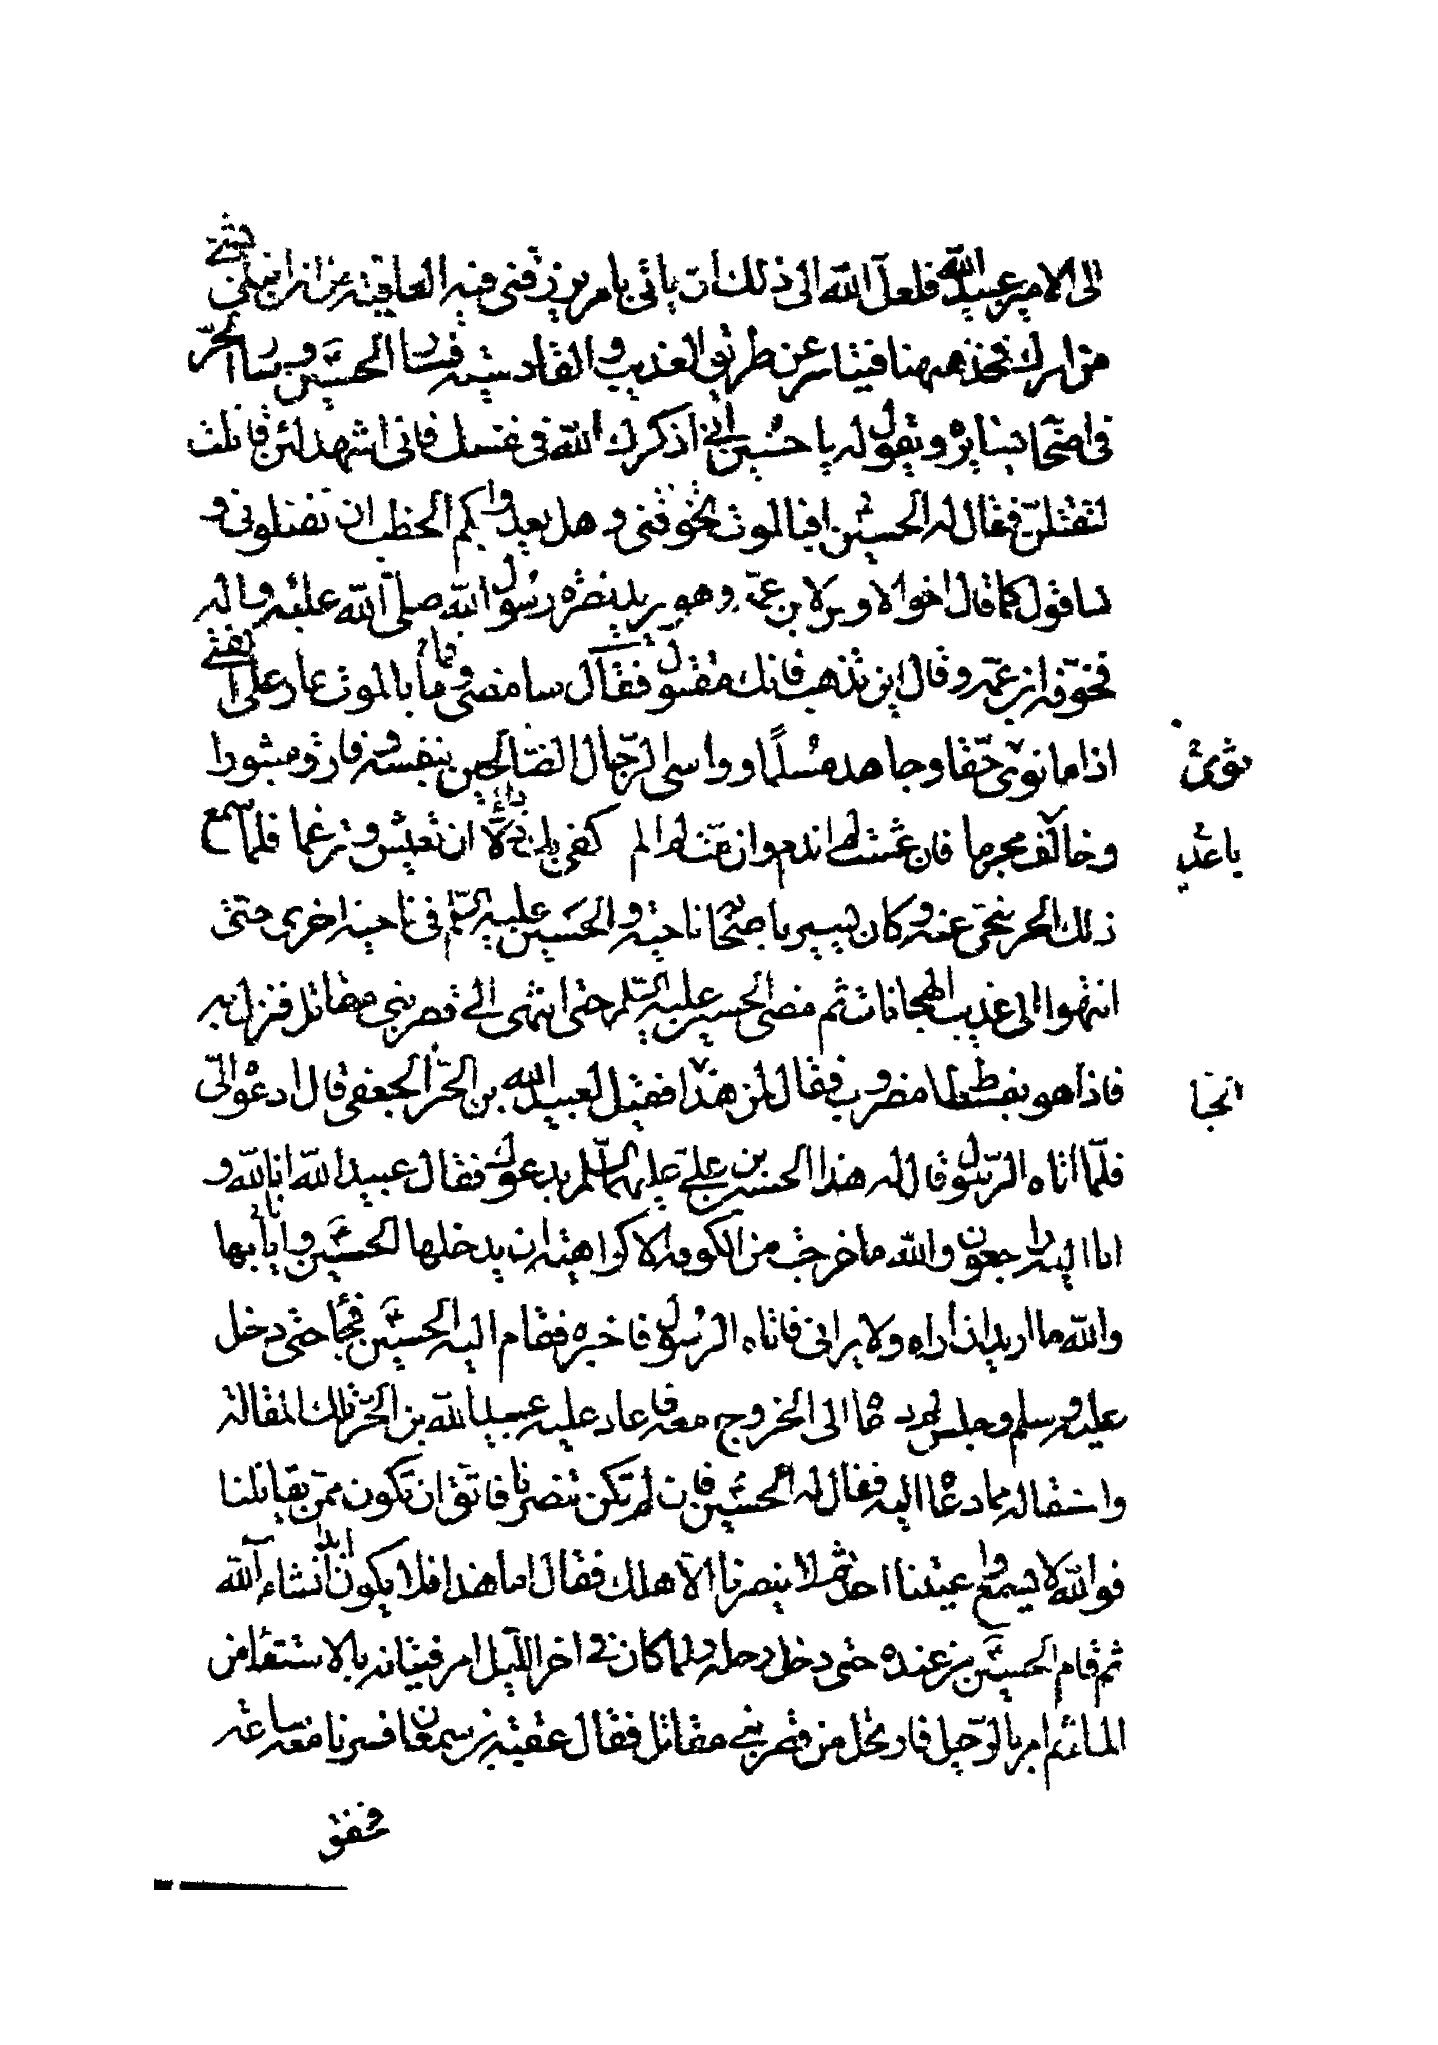 الى الامير عبيد الله فلعل الله الى ذلك ان ياتى بامر يرزقنى فيه العافية من ان ابتلى بشئ
من امرك فخذ ههنا فتياسر عن طريق العذيب والقادسية فسار الحسين و سار الحر
فى اصحابه يسايره و يقول له يا حسين انى اذكرك الله فى نفسك فانى اشهد لئن قاتلت
لتقتلن فقال له الحسين افبالموت تخوفنى و هل يعدوا بكم الخطب ان تقتلونى و
ساقول كما قال اخو الاوس لابن عمه و هو يريد نصرة رسول الله صلى الله عليه و اله
فخوفه ابن عمه و قال اين تذهب فانك مقتول فقال سامضى و ما بالموت عار على الفتى
اذا ما نوى حقا و جاهد مسلما و واسى الرجال الصالحين بنفسه و فارق مثبورا
و خالف مجرما فان عشت لم اندم و ان مت لم الم كفى بك ذلا ان تعيش و ترغما فلما سمع
ذلك الحر تنحى عنه و كان يسير باصحابه ناحية و الحسين عليه السلم فى ناحية اخرى حتى
انتهوا الى عذيب الهجانات ثم مضى الحسين عليه السلم حتى انتهى الى قصر بنى مقاتل فنزل به
فاذا هو بفسطاط مضروب فقال لمن هذا فقيل لعبيد الله بن الحر الجعفى قال ادعوه الى
فلما اتاه الرسول قال له هذا الحسين بن على عليهما السلم يدعوك فقال عبيد الله انا لله و
انا اليه راجعون و الله ما خرجت من الكوفة الا كراهية ان يدخلها الحسين و انا بها
والله ما اريد ان اراه و لا يرانى فاتاه الرسول فاخبره فقام اليه الحسين فجاء حتى دخل
عليه و سلم و جلس ثم دعاه الى الخروج معه فاعاد عليه عبيد الله بن الحر تلك المقالة
واستقاله مما دعاه اليه فقال له الحسين فان لم تكن تنصرنا فاتق ان تكون ممن يقاتلنا
فوالله لا يسمع واعيتنا احد ثم لا ينصرنا الا هلك فقال اما هذا فلا يكون ابدا انشاء الله
ثم قام الحسين من عنده حتى دخل رحله و لما كان فى اخر الليل امر فتيانه بالاستقاء من
الماء ثم امر بالرحيل فارتحل من قصر بنى مقاتل فقال عقبة بن سمعان فسرنا معه ساعة
فخفق
نوى
يا عذ
انجا